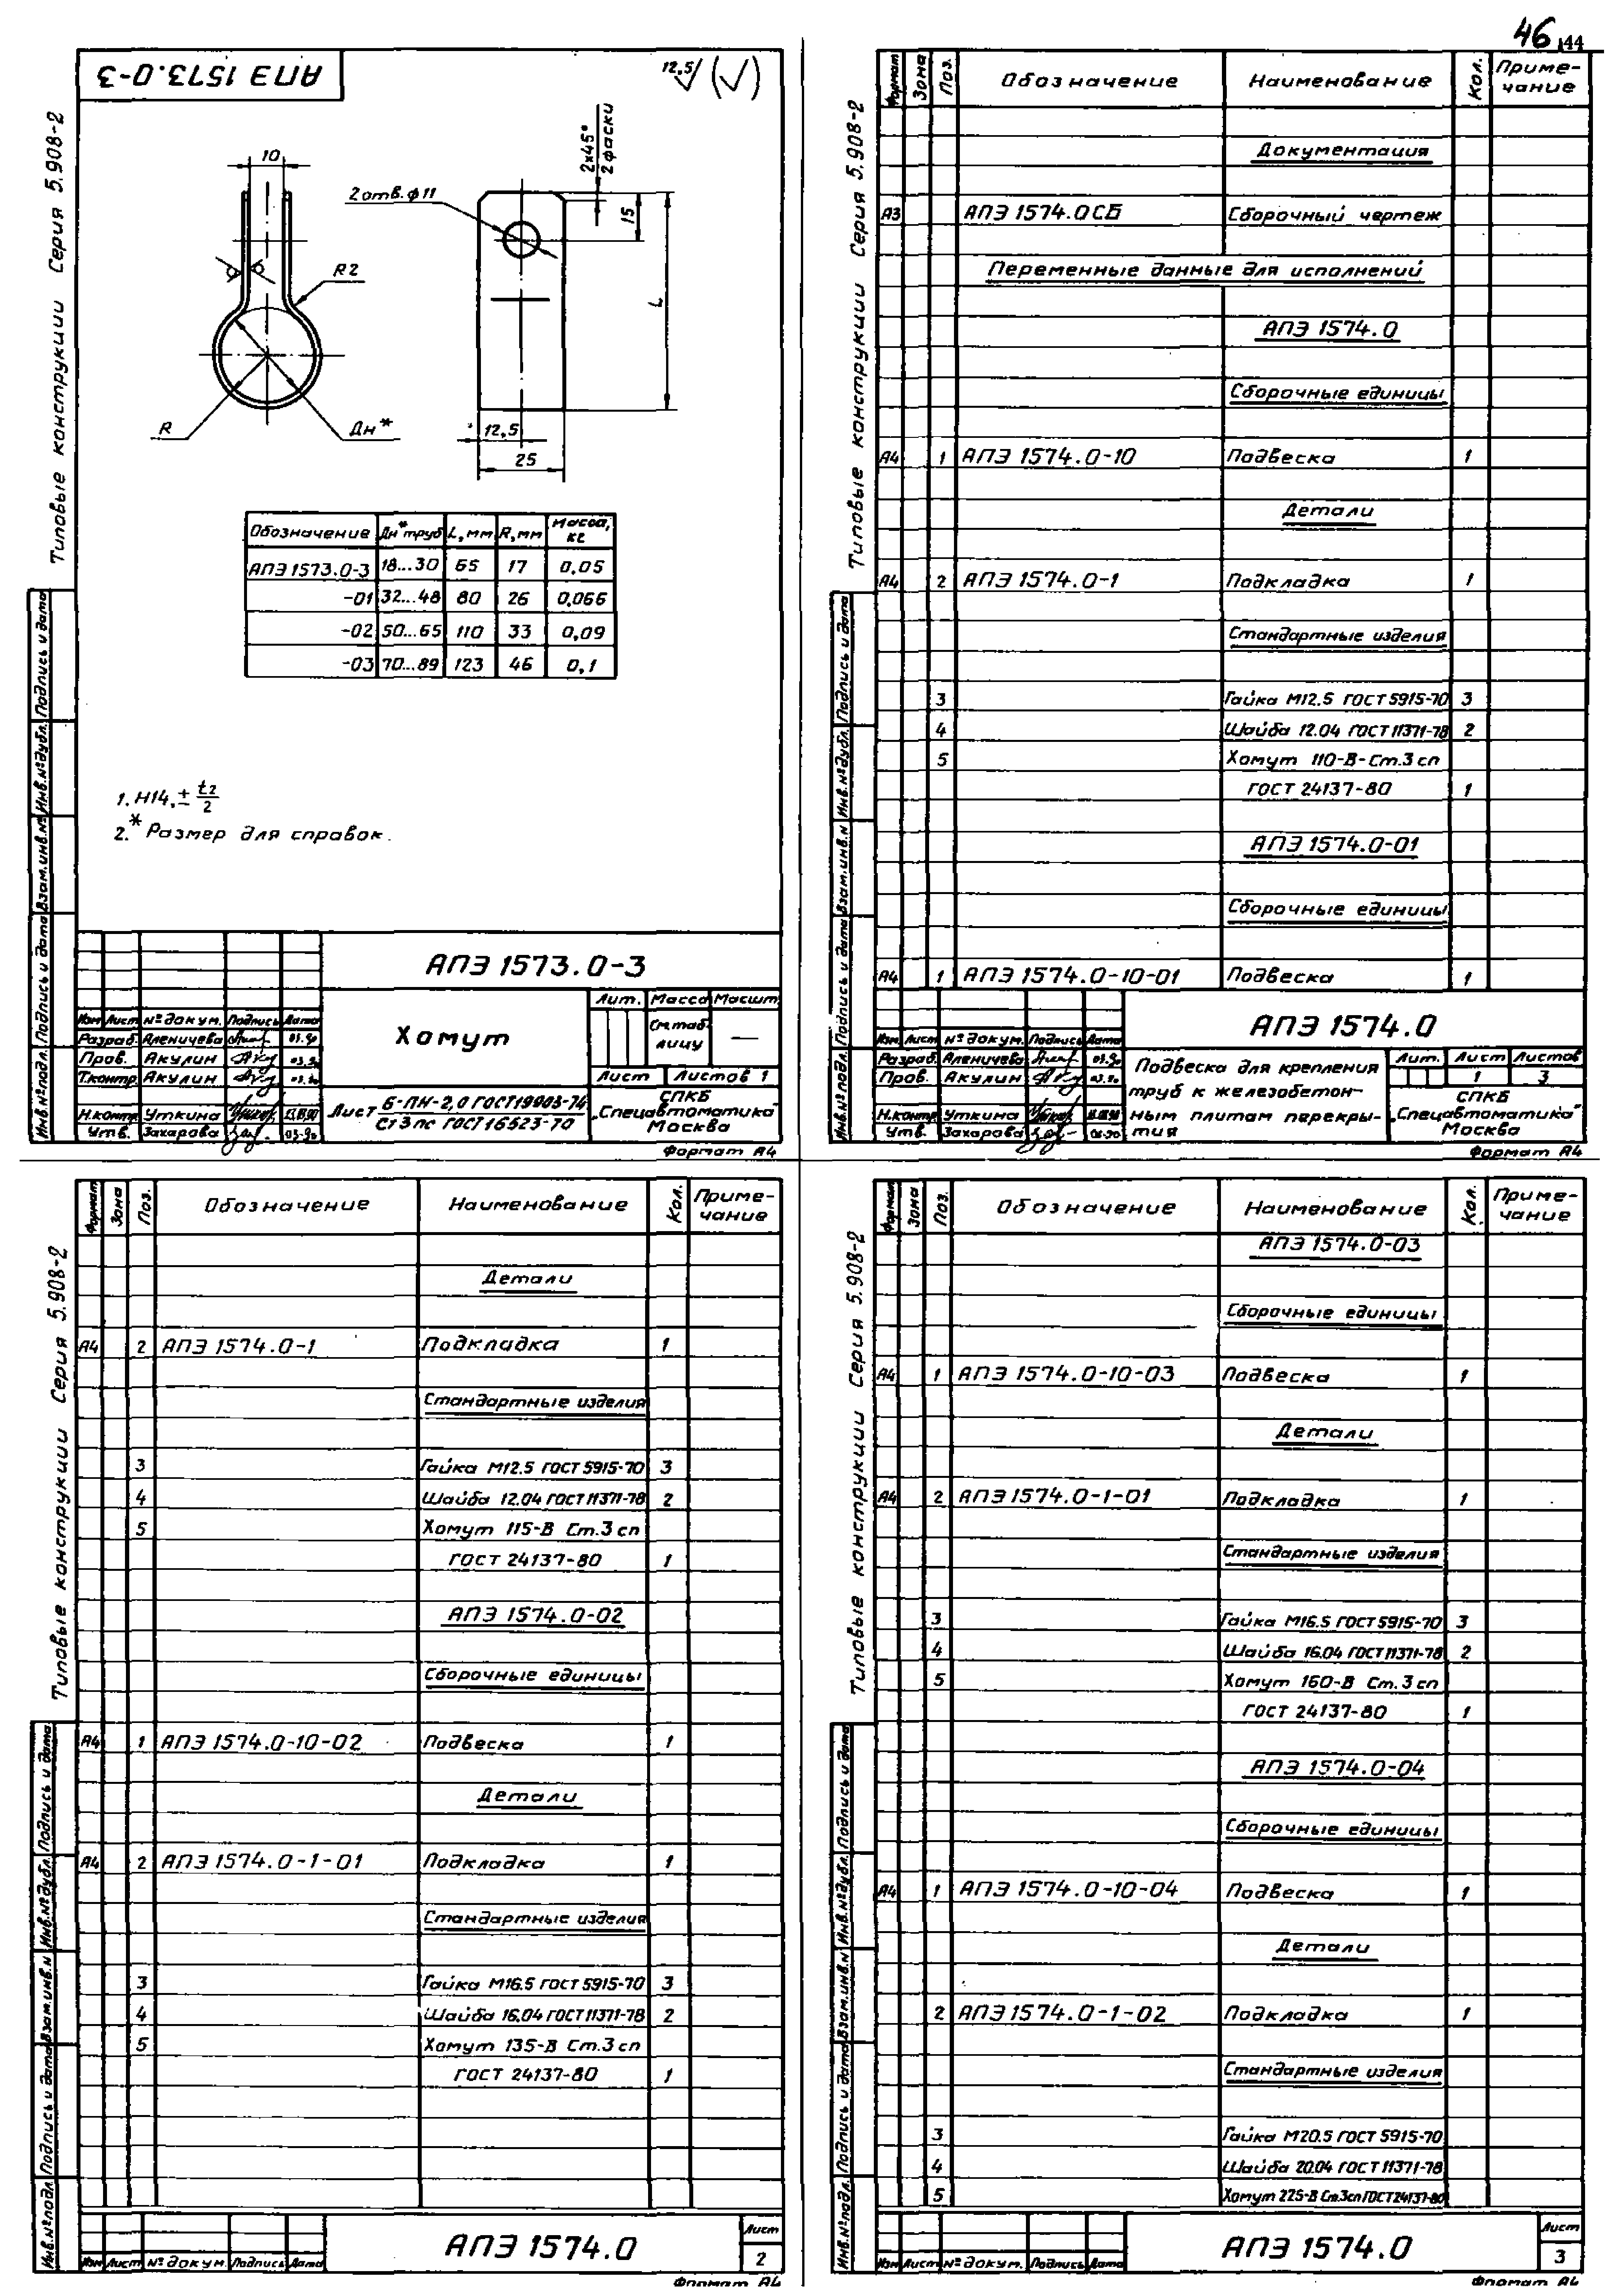 46 44
АПЭ 1573.0-3
12,5 (√)
Типовые конструкции Серия 5.908-2
10
2отв. ф11
2х45°
2 фаски
15
R2
L
R
Дн*
12,5
25
Обозначение Дн* труб L, мм R, мм Масса, кг
АПЭ 1573.0-3 18...30 65 17 0,05
-01 32...48 80 26 0,066
-02 50...65 110 33 0,09
-03 70...89 123 46 0,1
1. H14, ± t2/2
2.* Размер для справок.
Инв.№подл. Подпись и дата Взам.инв.№ Инв.№дубл. Подпись и дата
АПЭ 1573.0-3
Изм Лист № докум. Подпись Дата
Разраб. Аленичева 03.90
Пров. Акулин 03.90
Т.контр. Акулин 03.90
Н.контр. Уткина
Утв. Захарова 03.90
Хомут
Лит. Масса Масшт.
См.таблицу —
Лист Листов 1
Лист Б-ПН-2,0 ГОСТ19903-74
Ст3пс ГОСТ16523-70
СПКБ
„Спецавтоматика"
Москва
Формат А4
Типовые конструкции Серия 5.908-2
Формат Зона Поз. Обозначение Наименование Кол. Приме-
чание
Документация
А3 АПЭ 1574.0СБ Сборочный чертеж
Переменные данные для исполнений
АПЭ 1574.0
Сборочные единицы
А4 1 АПЭ 1574.0-10 Подвеска 1
Детали
А4 2 АПЭ 1574.0-1 Подкладка 1
Стандартные изделия
3 Гайка М12.5 ГОСТ 5915-70 3
4 Шайба 12.04 ГОСТ 11371-78 2
5 Хомут 110-В-Ст.3сп
ГОСТ 24137-80 1
АПЭ 1574.0-01
Сборочные единицы
А4 1 АПЭ 1574.0-10-01 Подвеска 1
Инв.№подл. Подпись и дата Взам.инв.№ Инв.№дубл. Подпись и дата
АПЭ 1574.0
Изм. Лист № докум. Подпись Дата
Разраб. Аленичева 03.90
Пров. Акулин 03.90
Н.контр. Уткина
Утв. Захарова 03.90
Подвеска для крепления
труб к железобетон-
ным плитам перекры-
тия
Лит. Лист Листов
1 3
СПКБ
„Спецавтоматика"
Москва
Формат А4
Типовые конструкции Серия 5.908-2
Формат Зона Поз. Обозначение Наименование Кол. Приме-
чание
Детали
А4 2 АПЭ 1574.0-1 Подкладка 1
Стандартные изделия
3 Гайка М12.5 ГОСТ 5915-70 3
4 Шайба 12.04 ГОСТ 11371-78 2
5 Хомут 115-В Ст.3сп
ГОСТ 24137-80 1
АПЭ 1574.0-02
Сборочные единицы
А4 1 АПЭ 1574.0-10-02 Подвеска 1
Детали
А4 2 АПЭ 1574.0-1-01 Подкладка 1
Стандартные изделия
3 Гайка М16.5 ГОСТ 5915-70 3
4 Шайба 16.04 ГОСТ 11371-78 2
5 Хомут 135-В Ст.3сп
ГОСТ 24137-80 1
Инв.№подл. Подпись и дата Взам.инв.№ Инв.№дубл. Подпись и дата
Изм Лист № докум. Подпись Дата
АПЭ 1574.0
Лист
2
Формат А4
Типовые конструкции Серия 5.908-2
Формат Зона Поз. Обозначение Наименование Кол. Приме-
чание
АПЭ 1574.0-03
Сборочные единицы
А4 1 АПЭ 1574.0-10-03 Подвеска 1
Детали
А4 2 АПЭ 1574.0-1-01 Подкладка 1
Стандартные изделия
3 Гайка М16.5 ГОСТ 5915-70 3
4 Шайба 16.04 ГОСТ 11371-78 2
5 Хомут 160-В Ст.3сп
ГОСТ 24137-80 1
АПЭ 1574.0-04
Сборочные единицы
А4 1 АПЭ 1574.0-10-04 Подвеска 1
Детали
2 АПЭ 1574.0-1-02 Подкладка 1
Стандартные изделия
3 Гайка М20.5 ГОСТ 5915-70
4 Шайба 20.04 ГОСТ 11371-78
5 Хомут 225-В Ст.3сп ГОСТ 24137-80
Инв.№подл. Подпись и дата Взам.инв.№ Инв.№дубл. Подпись и дата
Изм Лист № докум. Подпись Дата
АПЭ 1574.0
Лист
3
Формат А4